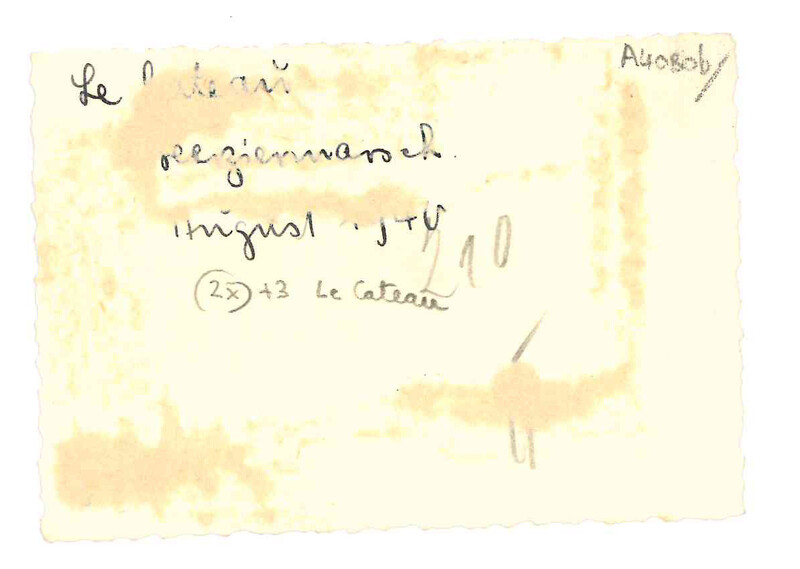 A40806/
Le Cateau
August 1940
210
(2x) +3 Le Cateau